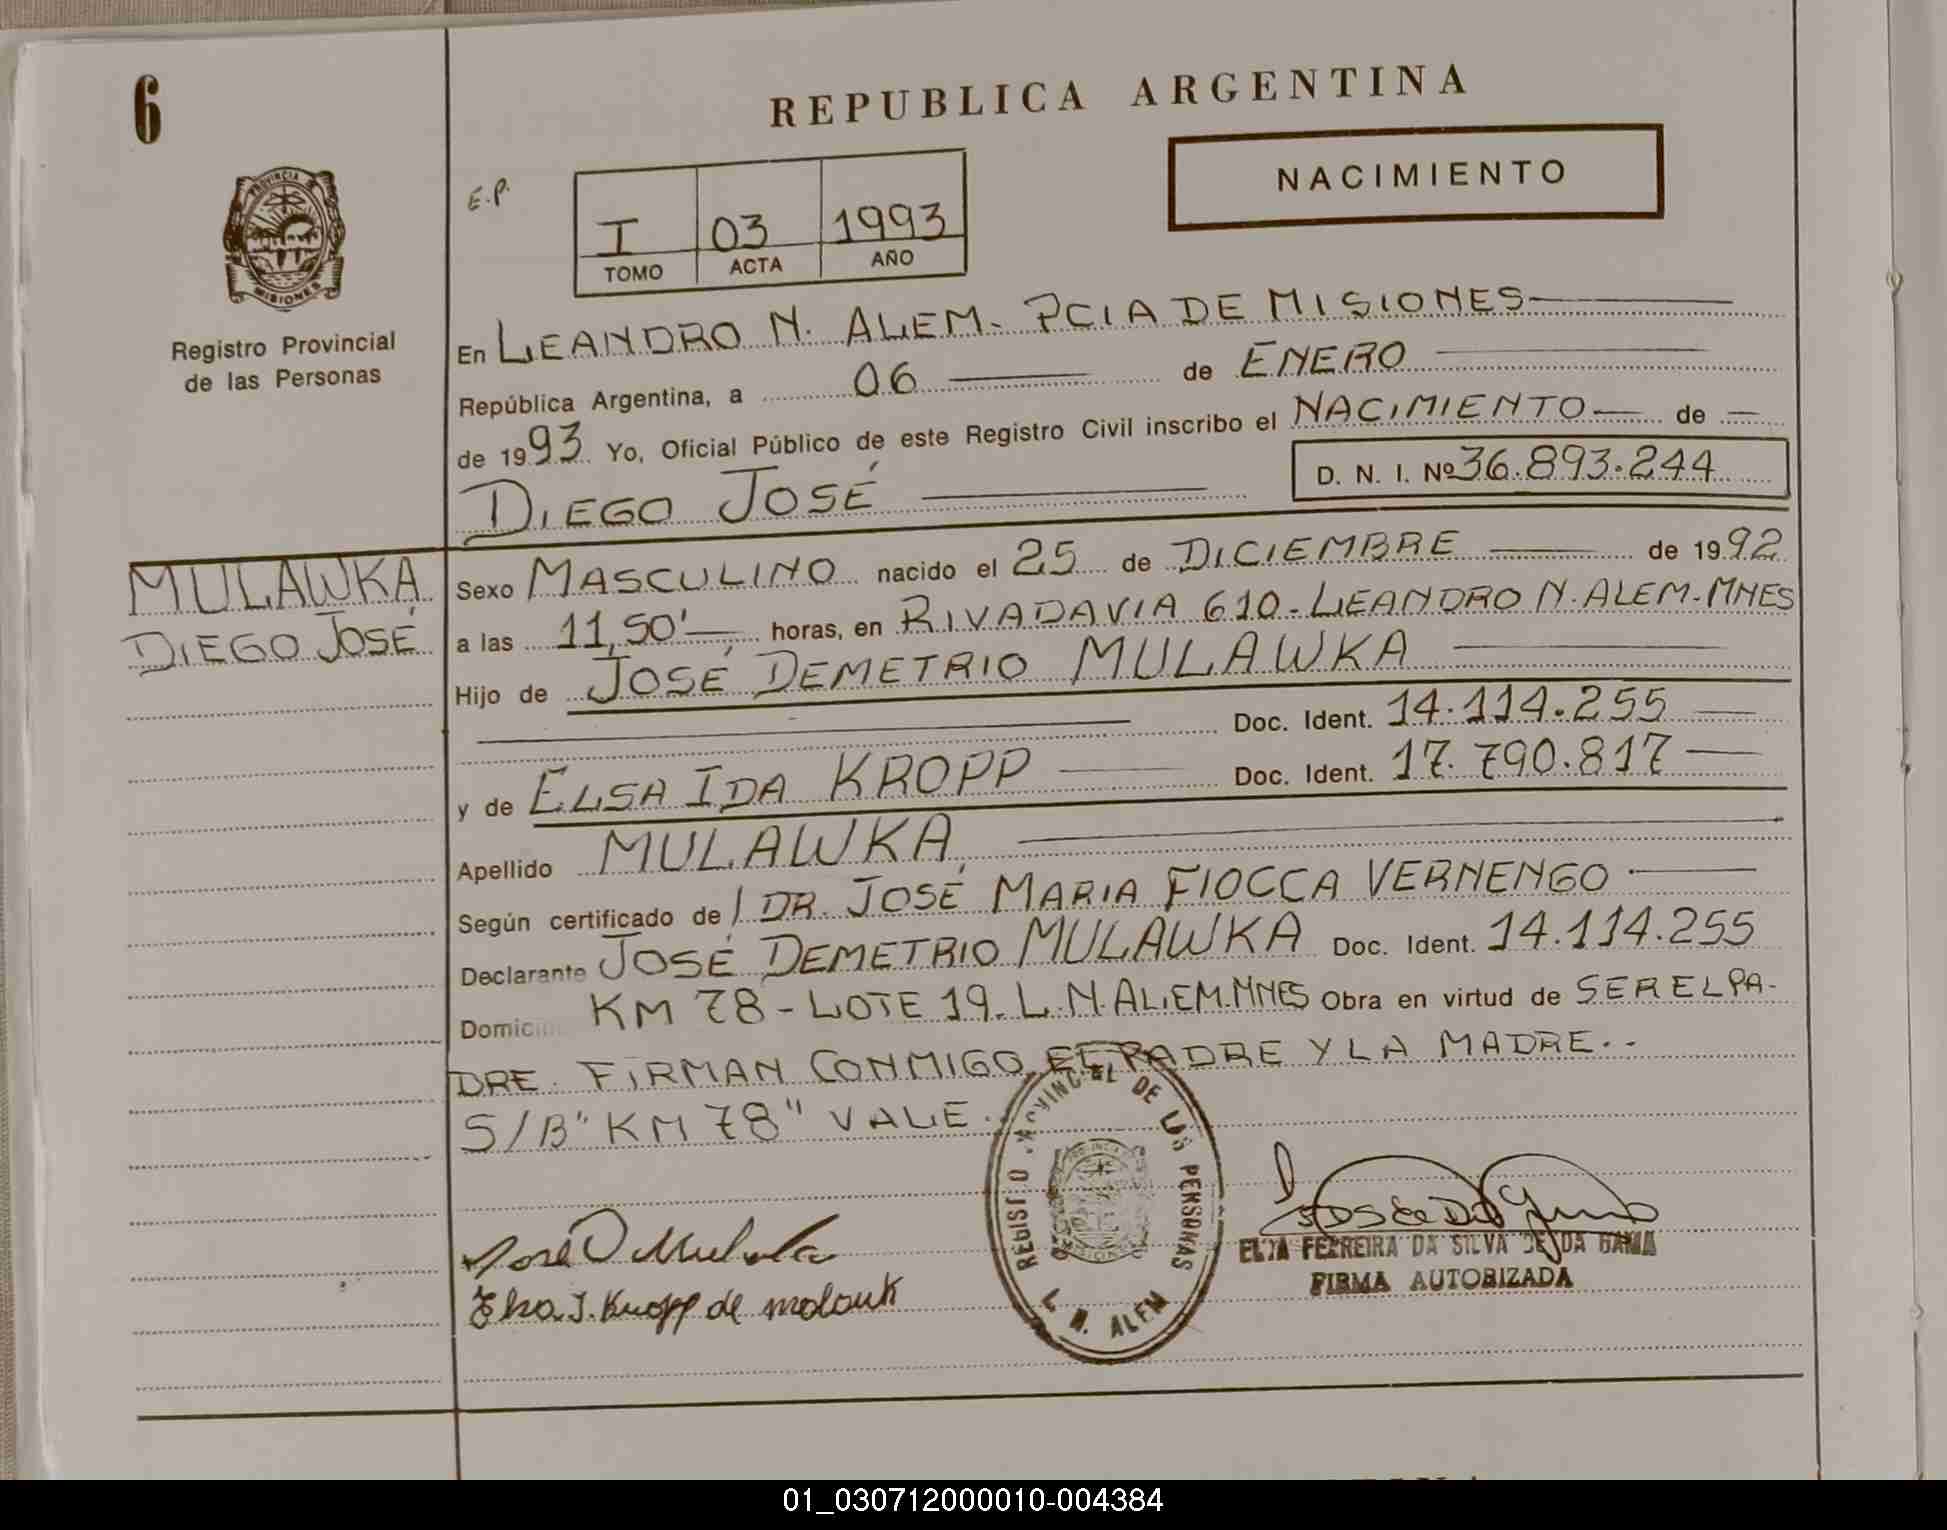 6
REPUBLICA ARGENTINA
NACIMIENTO
E.P.
I 03 1993
TOMO ACTA AÑO
PROVINCIA DE
MISIONES
Registro Provincial
de las Personas
En LEANDRO N. ALEM - PCIA DE MISIONES
República Argentina, a 06 de ENERO
de 1993 Yo, Oficial Público de este Registro Civil inscribo el NACIMIENTO de
DIEGO JOSÉ D. N. I. Nº 36.893.244
MULAWKA
DIEGO JOSÉ
Sexo MASCULINO nacido el 25 de DICIEMBRE de 1992
a las 11,50' horas, en RIVADAVIA 610 - LEANDRO N. ALEM - MNES
Hijo de JOSÉ DEMETRIO MULAWKA
Doc. Ident. 14.114.255
y de ELSA IDA KROPP Doc. Ident. 17.790.817
Apellido MULAWKA
Según certificado de / DR. JOSÉ MARIA FIOCCA VERNENGO
Declarante JOSÉ DEMETRIO MULAWKA Doc. Ident. 14.114.255
Domici KM 78 - LOTE 19 - L.N. ALEM. MNES Obra en virtud de SER EL PA-
DRE. FIRMAN CONMIGO EL PADRE Y LA MADRE..
S/B "KM 78" VALE.
DE LAS PERSONAS
L. N. ALEM
José D Mulawka
Elsa. I. Kropp de molauk
ELSA FERREIRA DA SILVA DE DA GAMA
FIRMA AUTORIZADA
01_030712000010-004384